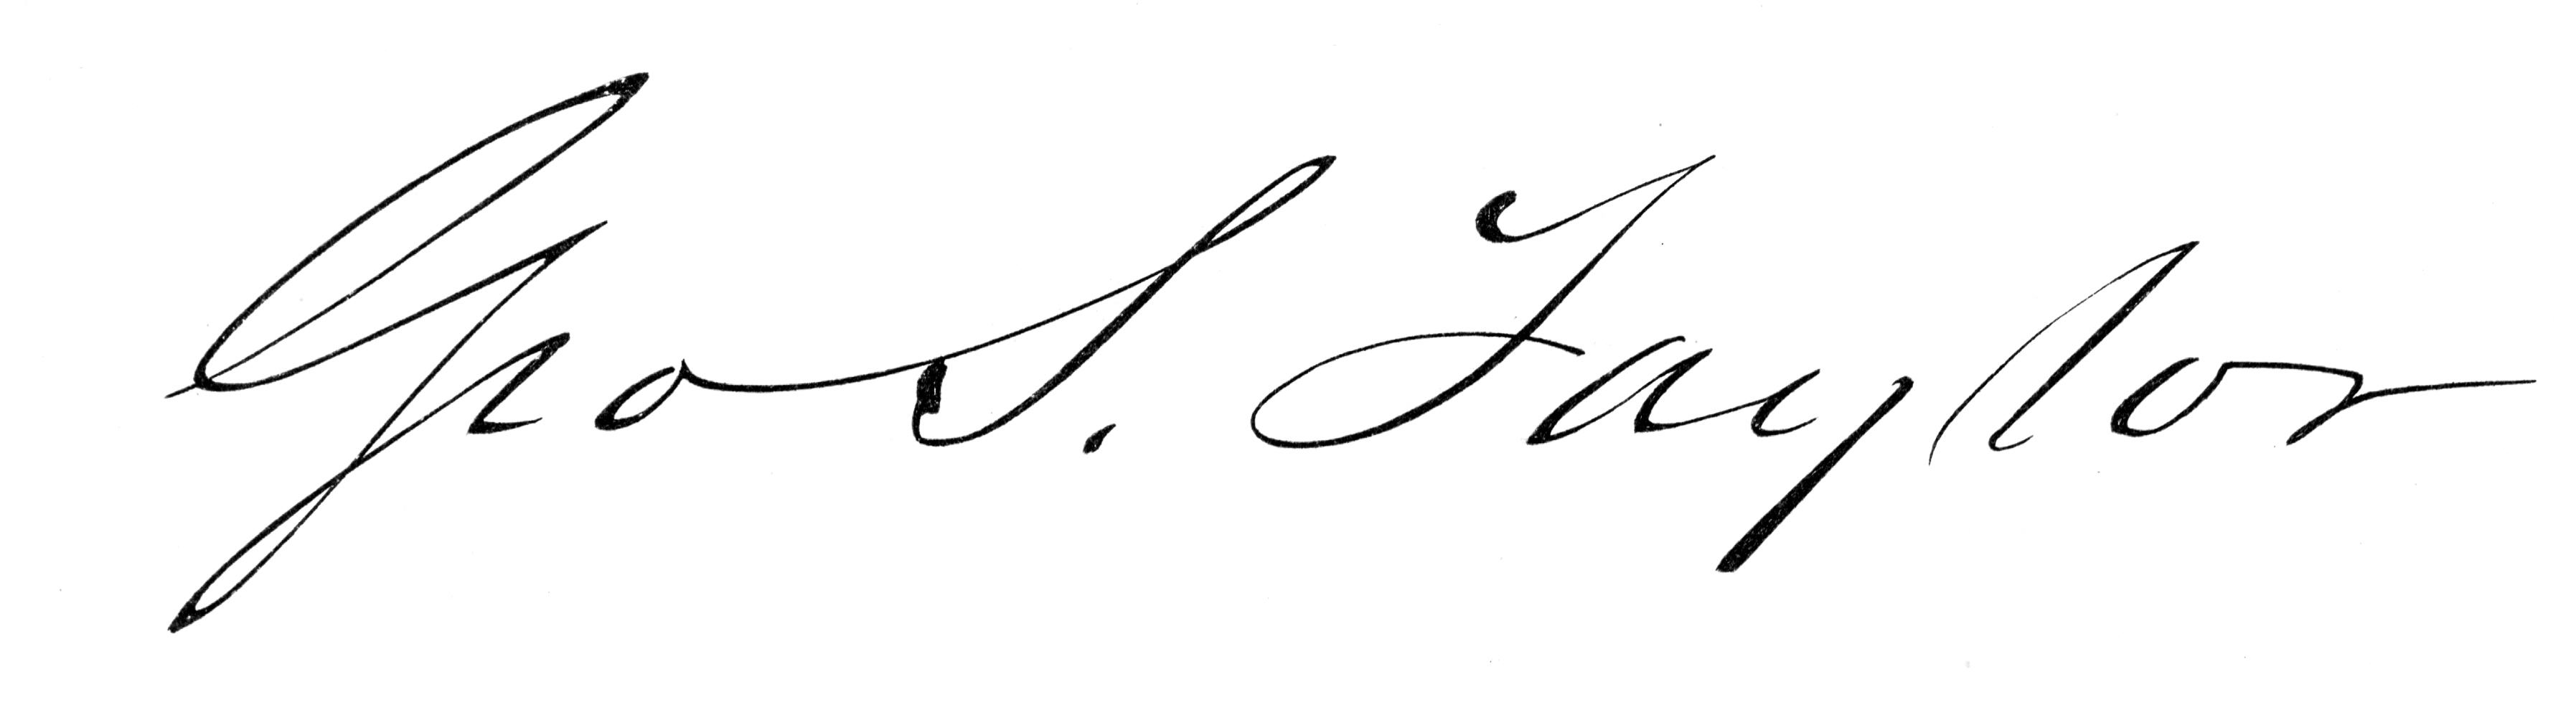 Geo S. Taylor